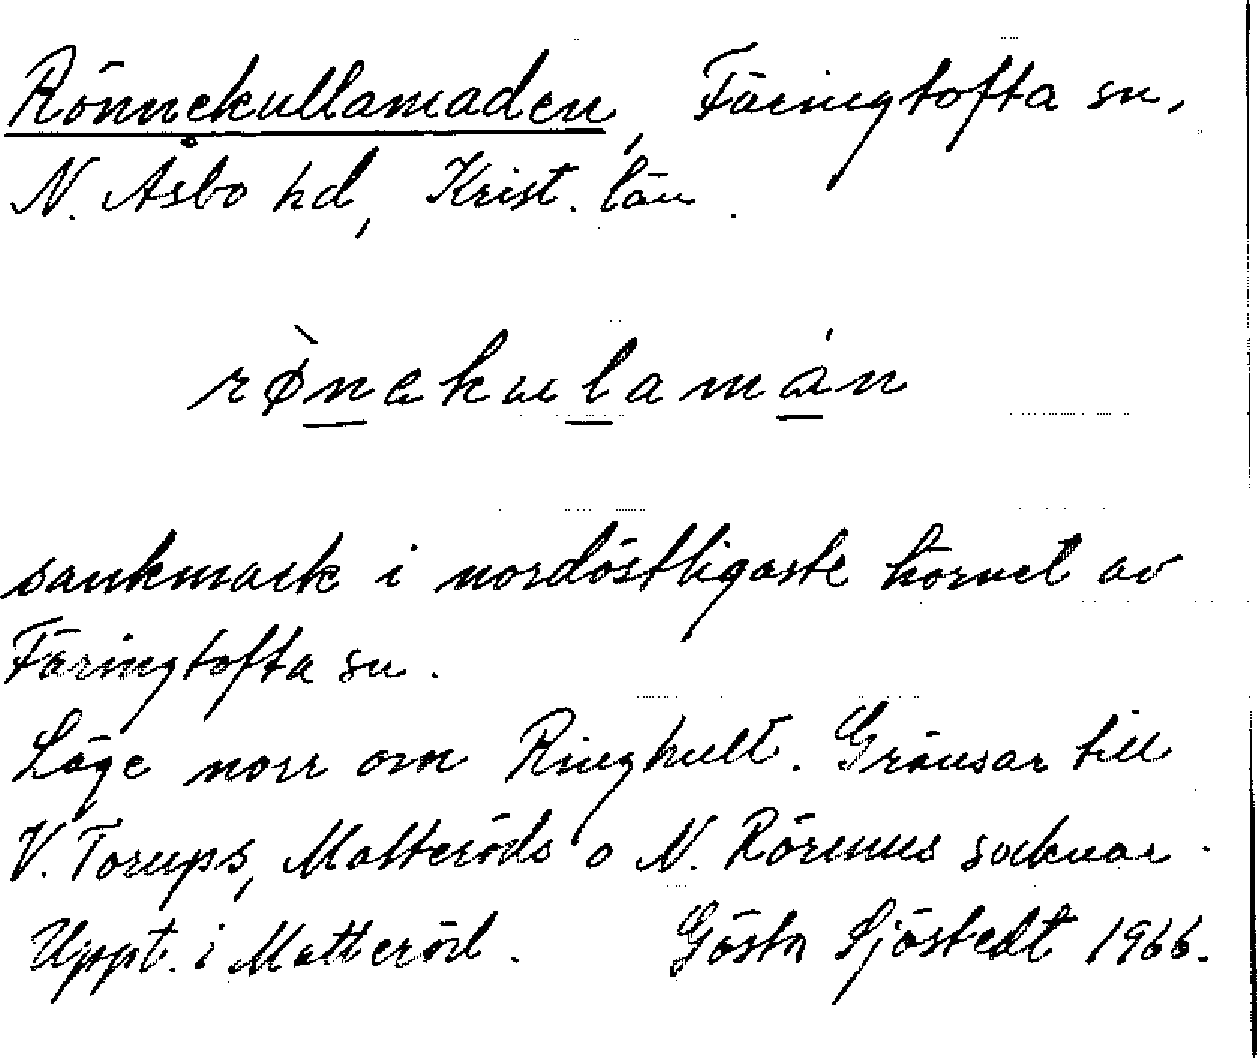 Rönnekullamaden, Färingtofta sn,
N. Åsbo hd, Krist. län.
rø̀nekulamán
sankmark i nordöstligaste hörnet av
Färingtofta sn.
Läge norr om Ringhult. Gränsar till
V. Torups, Matteröds o N. Rörums socknar.
Uppt. i Matteröd. Gösta Sjöstedt 1966.